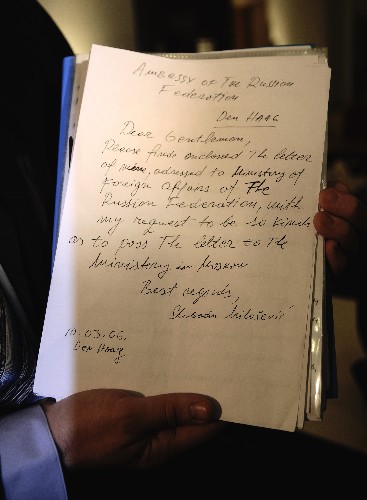 Ambassy of The Russian
Federation
Den Haag
Dear Gentleman,
Please find enclosed The letter
of mine, addressed to Ministry of
Foreign Affairs of The
Russian Federation, with
my request to be so kind
as to pass The letter to The
Ministry in Moscow
Best regards,
Slobodan Milošević
10.03.06.
Den Haag